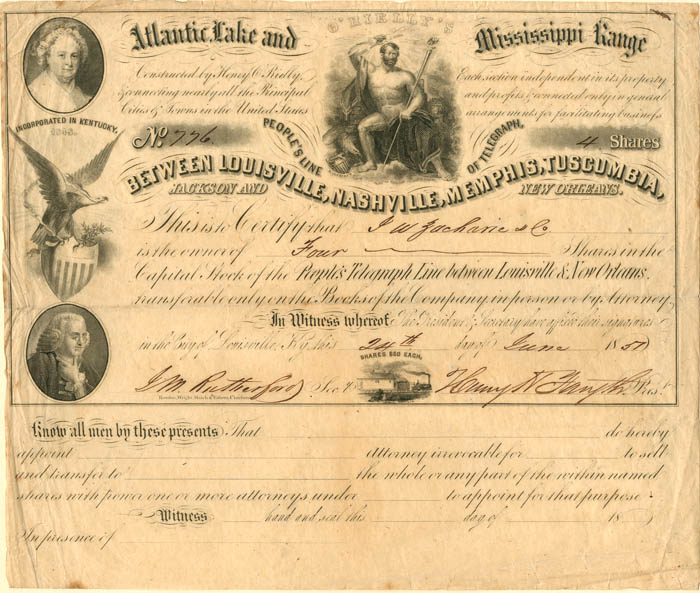 O'RIELLY'S
Atlantic, Lake and Mississippi Range
Constructed by Henry O'Rielly,
& connecting nearly all the Principal
Cities & Towns in the United States
Each section independent in its property
and profits & connected only in general
arrangements for facilitating business
INCORPORATED IN KENTUCKY.
No. 776
PEOPLE'S LINE OF TELEGRAPH,
4 Shares
BETWEEN LOUISVILLE, NASHVILLE, MEMPHIS, TUSCUMBIA,
JACKSON AND NEW ORLEANS.
This is to Certify that J W Zacharie & Co
is the owner of Four Shares in the
Capital Stock of the People's Telegraph Line between Louisville & New Orleans,
transferable only on the Books of the Company in person or by Attorney,
In Witness whereof The President & Secretary have affixed their signatures
in the City of Louisville, Ky. this 24th day of June 1851
SHARES $50 EACH,
J. M. Rutherford Sec'y. Pres.t
Know all men by these presents That do hereby
appoint Attorney irrevocable for to sell
and transfer to the whole or any part of the within named
shares with power one or more attorneys under to appoint for that purpose
Witness hand and seal this day of 18
In presence of